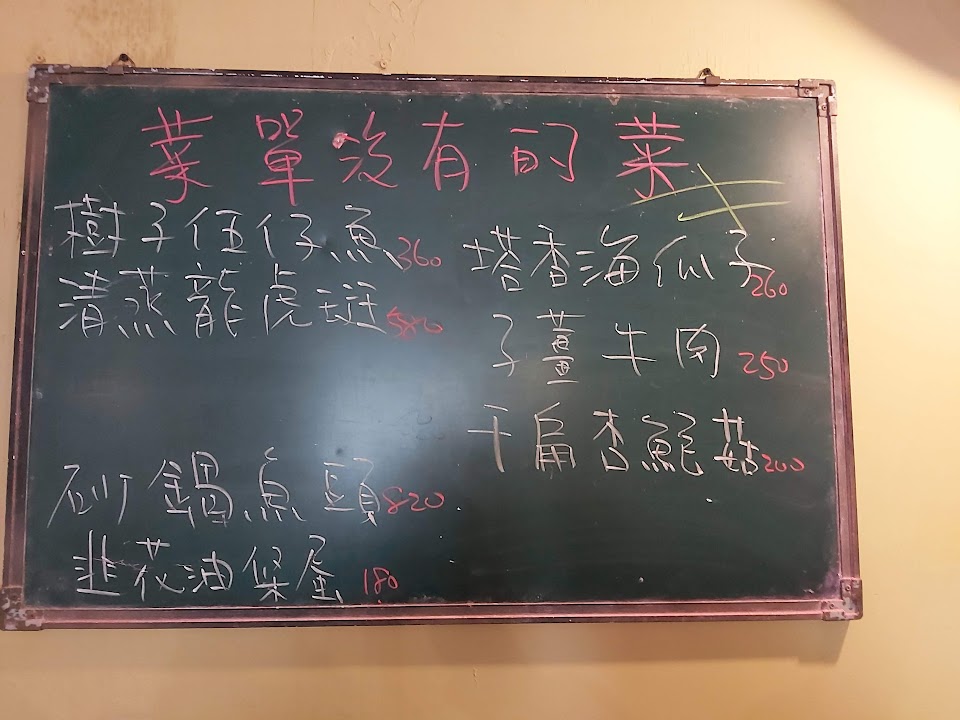 菜單沒有的菜
樹子伍仔魚 360
清蒸龍虎斑 580
砂鍋魚頭 820
韭花油條蛋 180
塔香海瓜子 260
子薑牛肉 250
干扁杏鮑菇 200